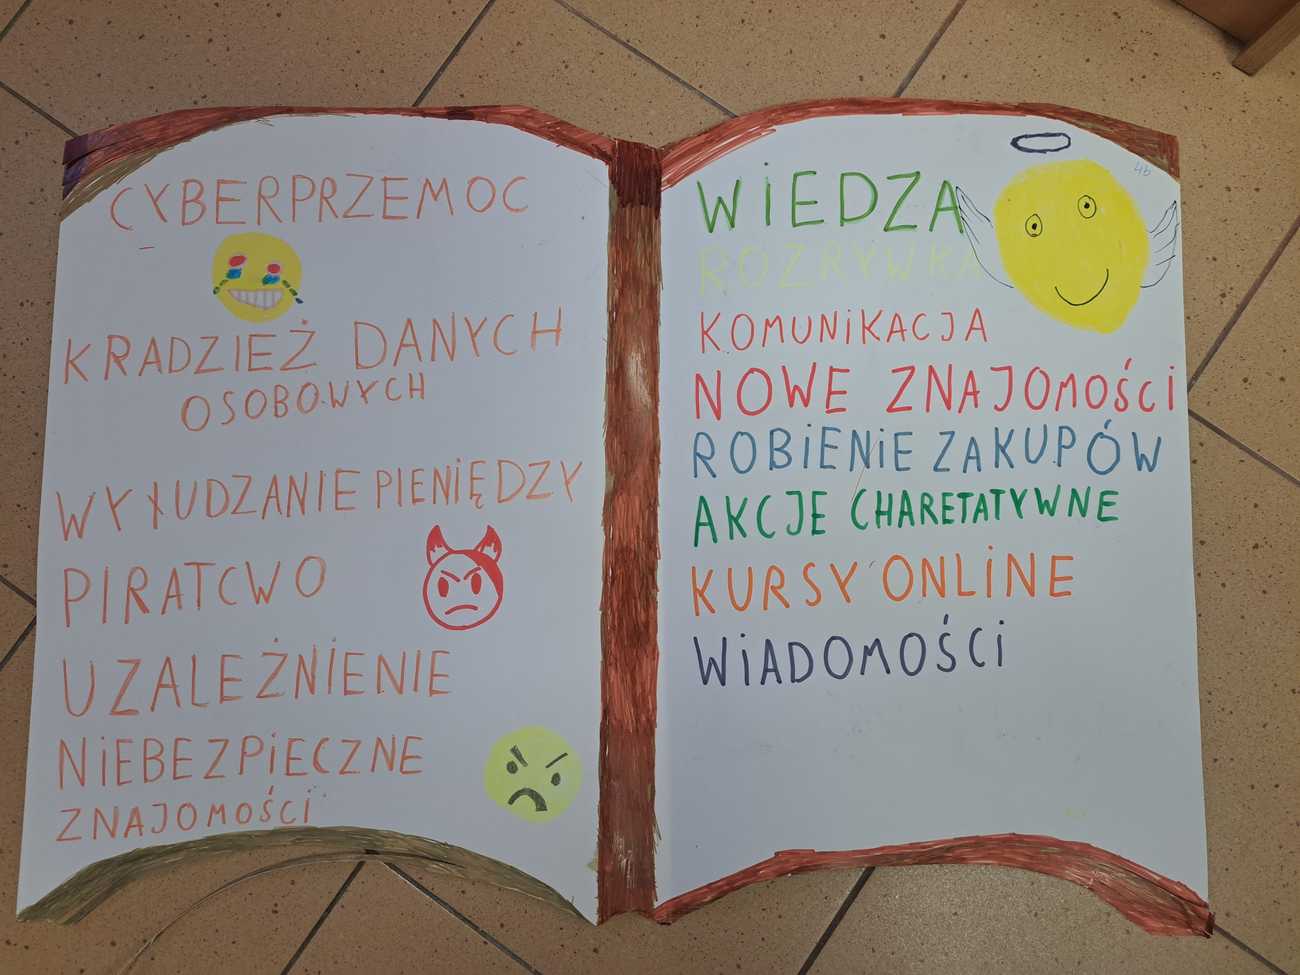 CYBERPRZEMOC
KRADZIEŻ DANYCH
OSOBOWYCH
WYŁUDZANIE PIENIĘDZY
PIRATCWO
UZALEŻNIENIE
NIEBEZPIECZNE
ZNAJOMOŚCI
4b
WIEDZA
ROZRYWKA
KOMUNIKACJA
NOWE ZNAJOMOŚCI
ROBIENIE ZAKUPÓW
AKCJE CHARETATYWNE
KURSY ONLINE
WIADOMOŚCI